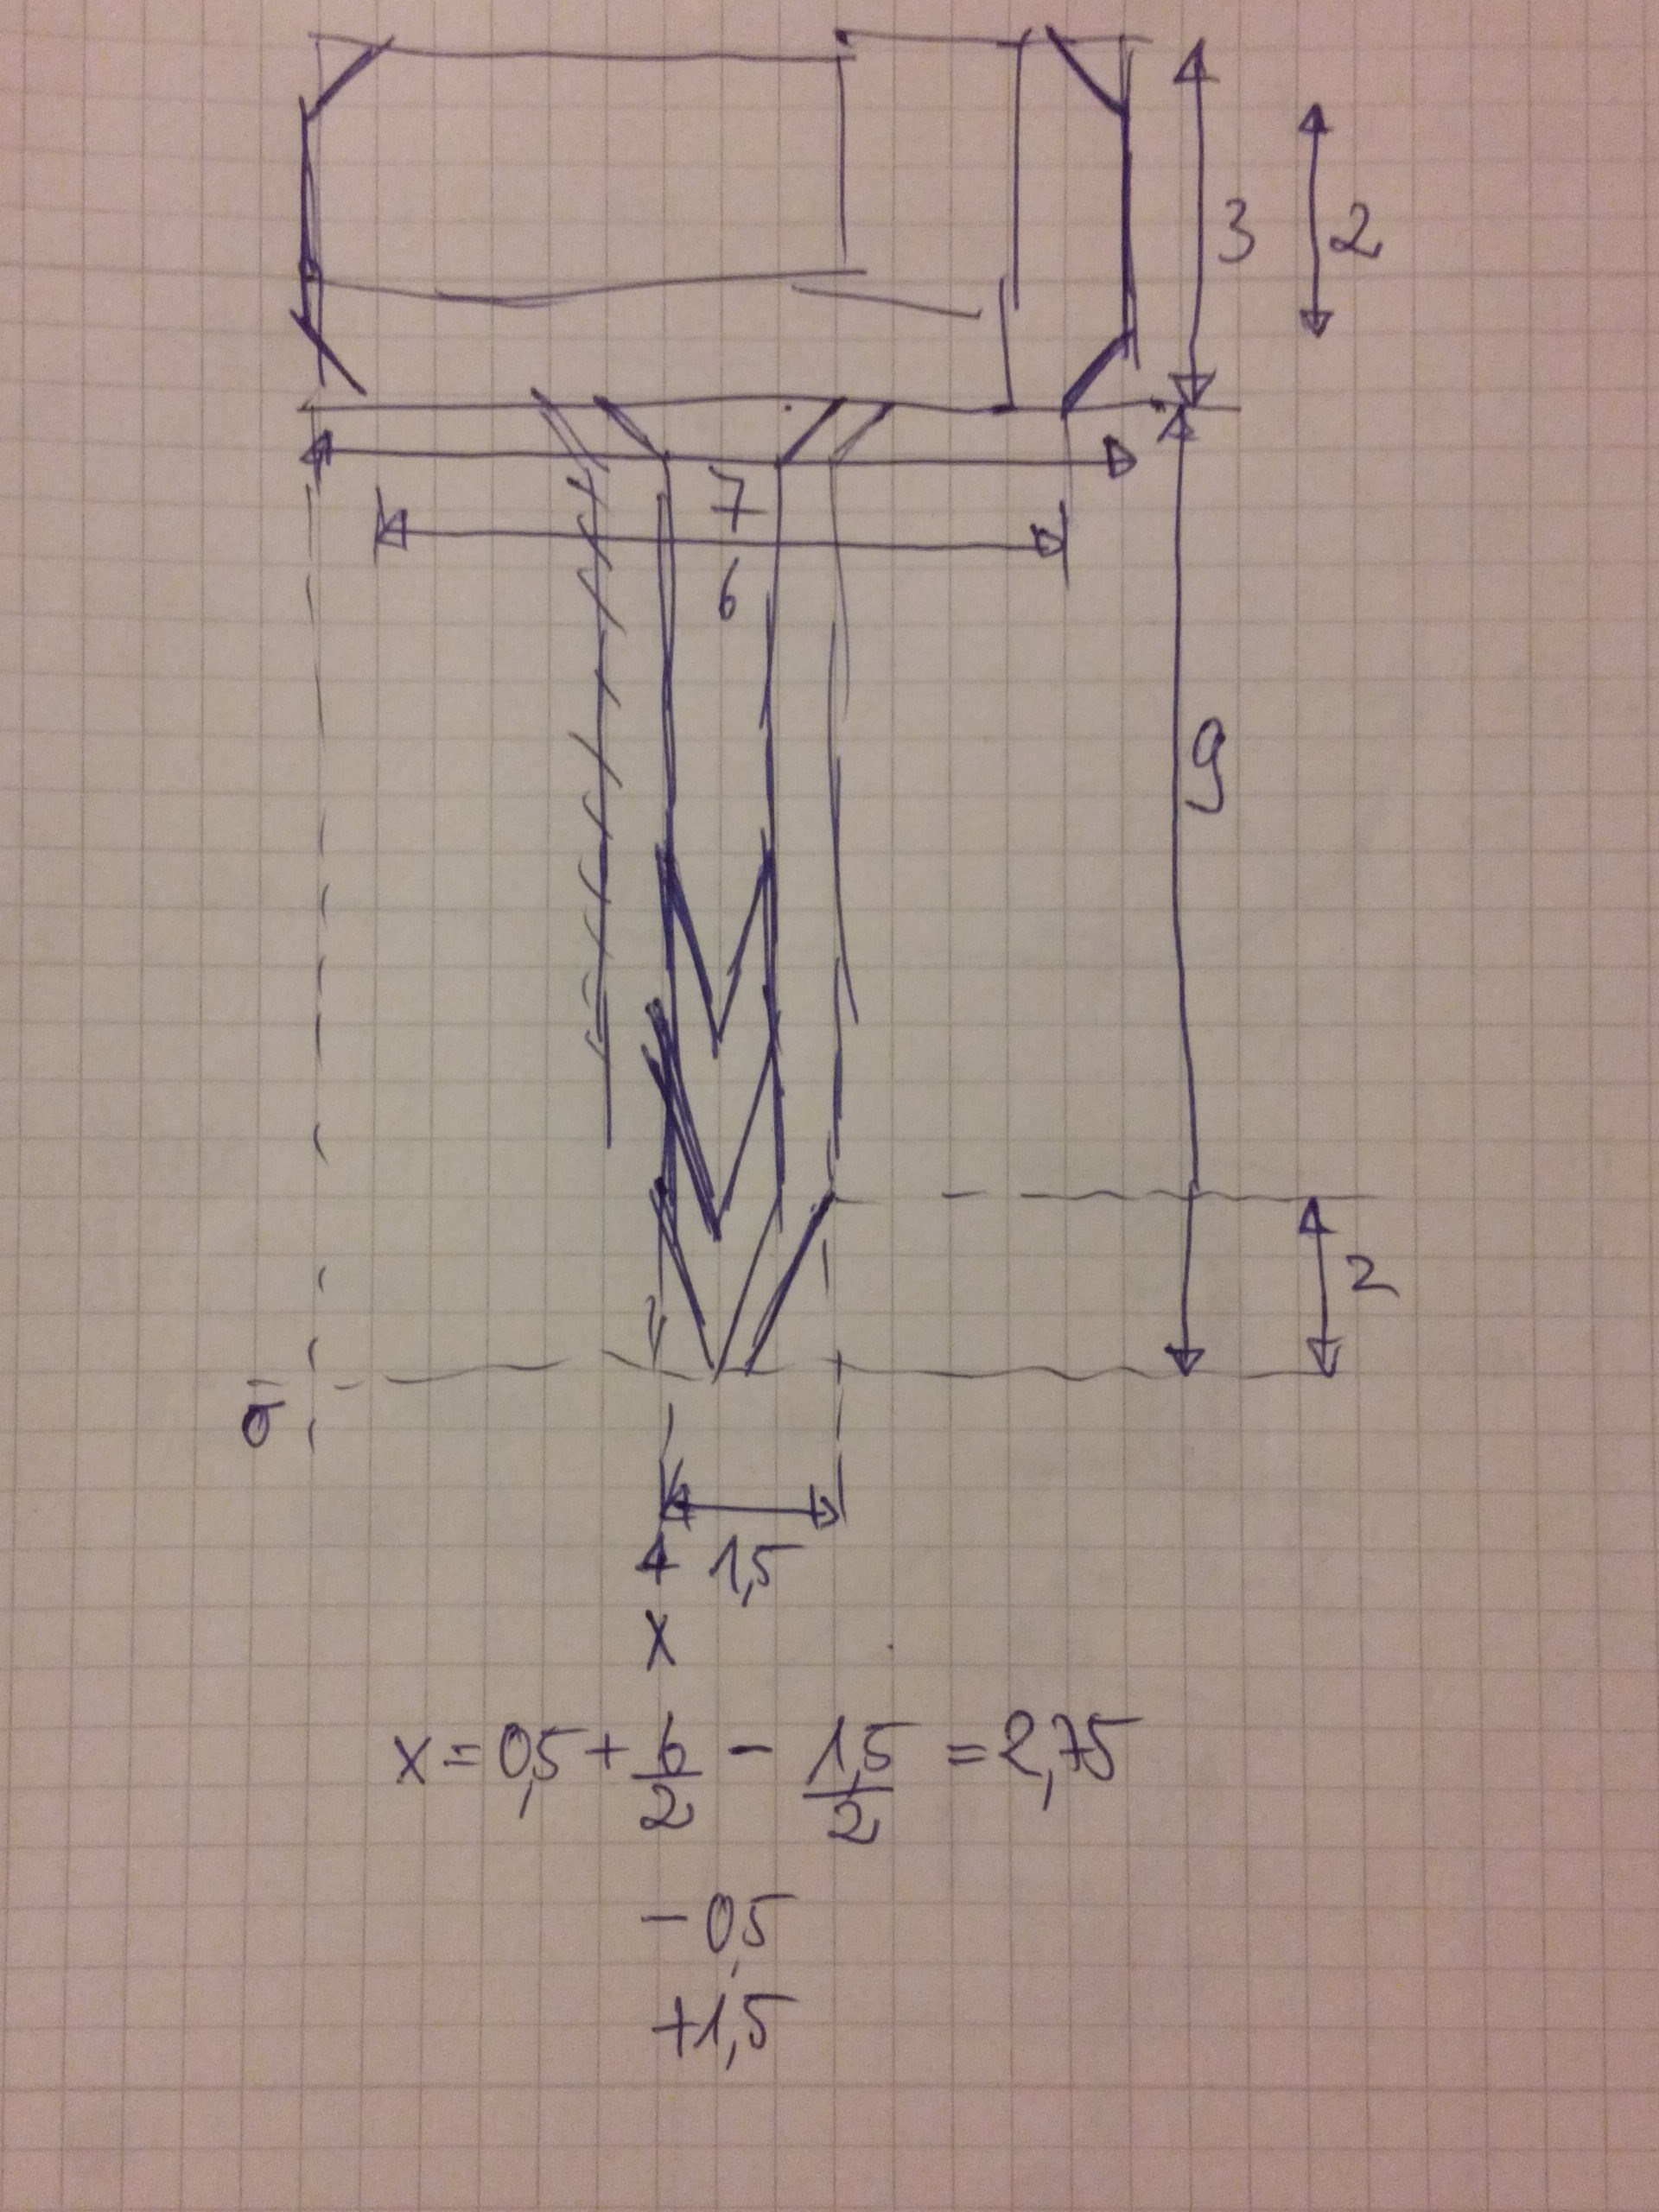 3
2
7
6
9
2
0
1,5
x
x = 0,5 + 6/2 - 1,5/2 = 2,75
- 0,5
+1,5